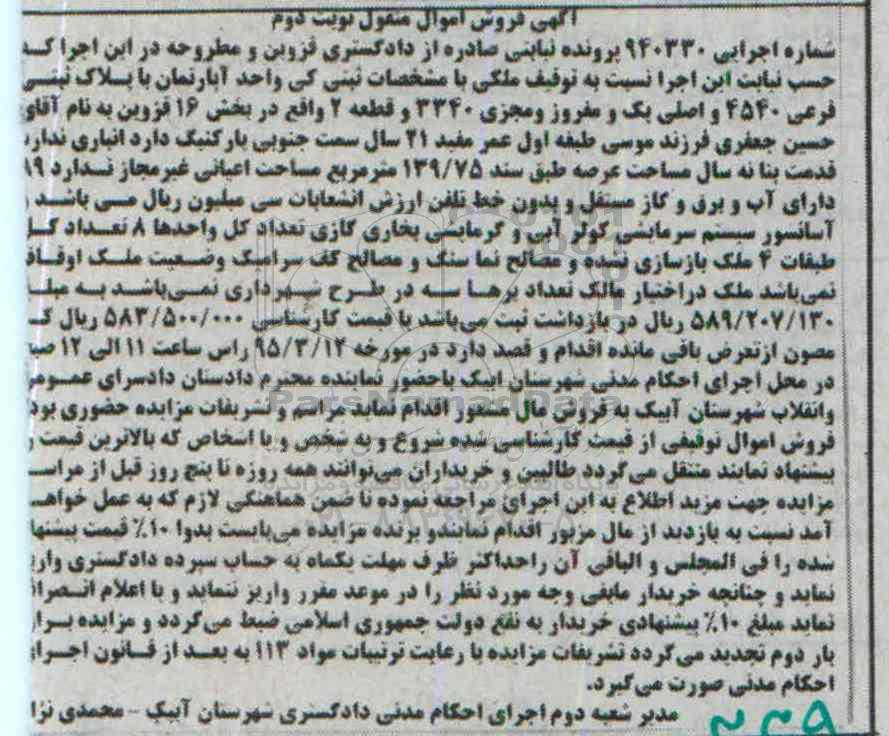 آگهی فروش اموال منقول نوبت دوم
شماره اجرایی ۹۴۰۳۳۰ پرونده نیابتی صادره از دادگستری قزوین و مطروحه در این اجرا که
حسب نیابت این اجرا نسبت به توقیف ملکی با مشخصات ثبتی کی واحد آپارتمان با پلاک ثبتی
فرعی ۴۵۴۰ و اصلی یک و مفروز ومجزی ۳۳۴۰ و قطعه ۲ واقع در بخش ۱۶ قزوین به نام آقای
حسین جعفری فرزند موسی طبقه اول عمر مفید ۲۱ سال سمت جنوبی پارکنیگ دارد انباری ندارد
قدمت بنا نه سال مساحت عرصه طبق سند ۱۳۹/۷۵ مترمربع مساحت اعیانی غیرمجاز ندارد ۸۹
دارای آب و برق و گاز مستقل و بدون خط تلفن ارزش انشعابات سی میلیون ریال می باشد
آسانسور سیستم سرمایشی کولر آبی و گرمایشی بخاری گازی تعداد کل واحدها ۸ تعداد کل
طبقات ۴ ملک بازسازی نشده و مصالح نما سنگ و مصالح کف سرامیک وضعیت ملک اوقاف
نمی‌باشد ملک دراختیار مالک تعداد برها سه در طرح شهرداری نمی‌باشد به مبلغ
۵۸۹/۲۰۷/۱۳۰ ریال در بازداشت ثبت می‌باشد با قیمت کارشناسی ۵۸۳/۵۰۰/۰۰۰ ریال که
مصون ازتعرض باقی مانده اقدام و قصد دارد در مورخه ۹۵/۳/۱۲ راس ساعت ۱۱ الی ۱۲ صبح
در محل اجرای احکام مدنی شهرستان آبیک باحضور نماینده محترم دادستان دادسرای عمومی
وانقلاب شهرستان آبیک به فروش مال مشعور اقدام نماید مراسم و تشریفات مزایده حضوری بوده
فروش اموال توقیفی از قیمت کارشناسی شده شروع و به شخص و یا اشخاص که بالاترین قیمت را
پیشنهاد نمایند منتقل می‌گردد طالبین و خریداران می‌توانند همه روزه تا پنج روز قبل از مراسم
مزایده جهت مزید اطلاع به این اجرای مراجعه نموده تا ضمن هماهنگی لازم که به عمل خواهد
آمد نسبت به بازدید از مال مزبور اقدام نمایندو برنده مزایده می‌بایست بدوا ۱۰٪ قیمت پیشنهاد
شده را فی المجلس و الباقی آن راحداکثر ظرف مهلت یکماه به حساب سپرده دادگستری واریز
نماید و چنانچه خریدار مابقی وجه مورد نظر را در موعد مقرر واریز ننماید و یا اعلام انصراف
نماید مبلغ ۱۰٪ پیشنهادی خریدار به نفع دولت جمهوری اسلامی ضبط می‌گردد و مزایده برای
بار دوم تجدید می‌گردد تشریفات مزایده با رعایت ترتیبات مواد ۱۱۳ به بعد از قانون اجرای
احکام مدنی صورت می‌گیرد.
مدیر شعبه دوم اجرای احکام مدنی دادگستری شهرستان آبیک - محمدی نژا
ParsNamadData